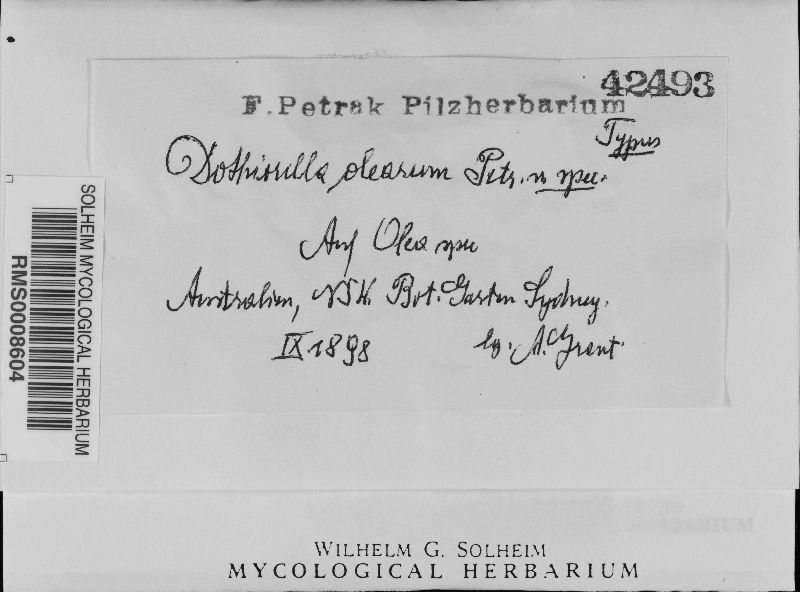 42493
F. Petrak Pilzherbarium
Typus
Dothiorella olearum Petr. n. spec.
Auf Olea spec
Australien, NSW. Bot. Garten Sydney.
IX 1898 lg. A. Grant.
SOLHEIM MYCOLOGICAL HERBARIUM
RMS0008604
WILHELM G. SOLHEIM
MYCOLOGICAL HERBARIUM